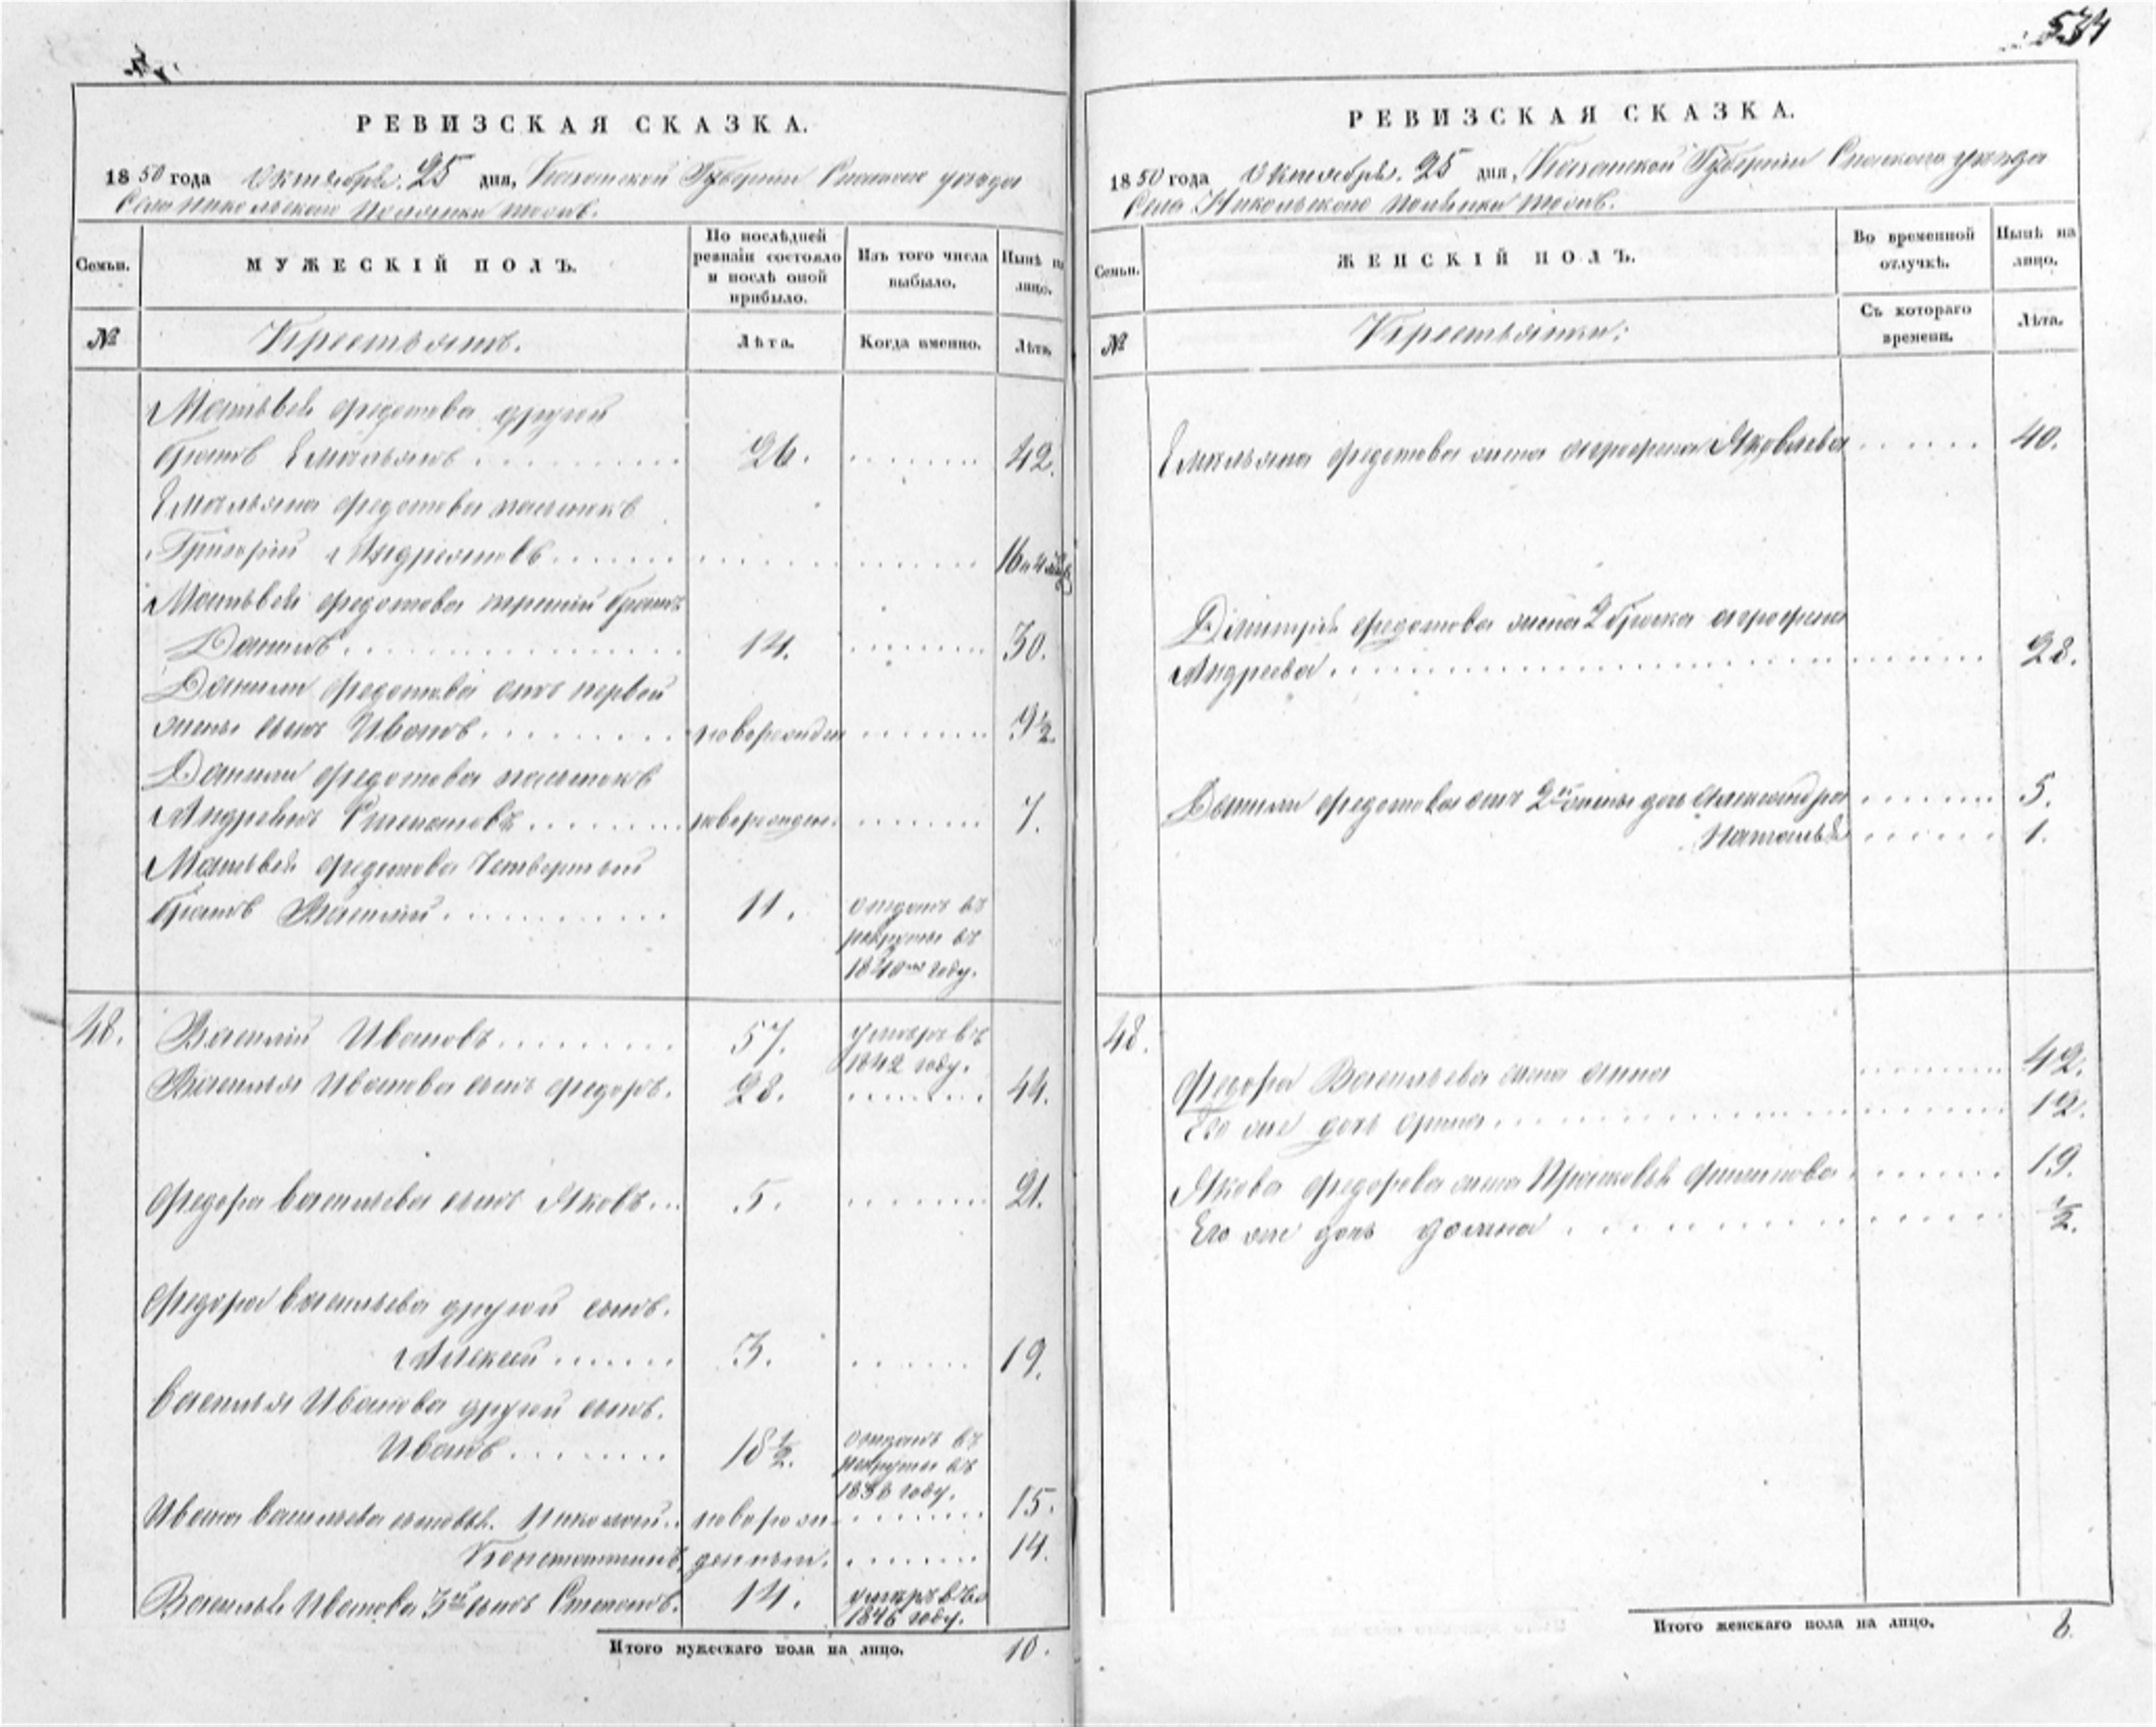 534
РЕВИЗСКАЯ СКАЗКА.
1850 года Октября 25 дня, Казанской Губернии Спаского уезда
Села Никольского Полянки тожъ.
Семьи.
МУЖЕСКІЙ ПОЛЪ.
По послѣдней ревизіи состояло и послѣ оной прибыло.
Изъ того числа выбыло.
Нынѣ на лицо.
№
Крестьянъ.
Лѣта.
Когда именно.
Лѣта.
Матьвея федотова другой
братъ Емельянъ 26. 42.
Емельяна федотова пасынокъ
Григорій Андреяновъ 16
Матьвея федотова третий братъ
Данилъ 14. 30.
Данилы федотова отъ первой
жены сынъ Иванъ новорожден 9½
Данилы федотова пасынокъ
Андреянъ Степановъ новорожден. 7.
Матьвея федотова Четвертый
братъ Василий 11. отданъ въ
рекруты въ
1840 году.
48. Василий Ивановъ 57. умеръ въ
1842 году.
Василья Иванова сынъ федоръ. 28. 44.
федора васильева сынъ Яковъ 5. 21.
федора васильева другой сынъ.
Алексей 3. 19.
Василья Иванова другой сынъ.
Иванъ 18½. отданъ въ
рекруты въ
1836 году.
Ивана васильева сыновья. Николай новорож- 15.
Константинъ денныи. 14.
Василья Иванова 3й сынъ Степанъ. 14. умеръ въ
1846 году.
Итого мужескаго пола на лицо. 10.
РЕВИЗСКАЯ СКАЗКА.
1850 года Октября 25 дня, Казанской Губернии Спаского уезда
Села Никольского Полянки тожъ.
Семьи.
ЖЕНСКІЙ ПОЛЪ.
Во временной отлучкѣ.
Нынѣ на лицо.
№
Крестьянки:
Съ котораго времени.
Лѣта.
Емельяна федотова жена агрофена Яковлева 40.
федотова жена 2 брака агрофена
Андреева 28.
Данилы федотова отъ 2й жены дочь Александра 5.
Наталья 1.
48.
федора Васильева жена анна 42.
Его же дочь орина 12.
Якова федорова жена Прасковья филипова 19.
Его же дочь домна ½.
Итого женскаго пола на лицо. 8.